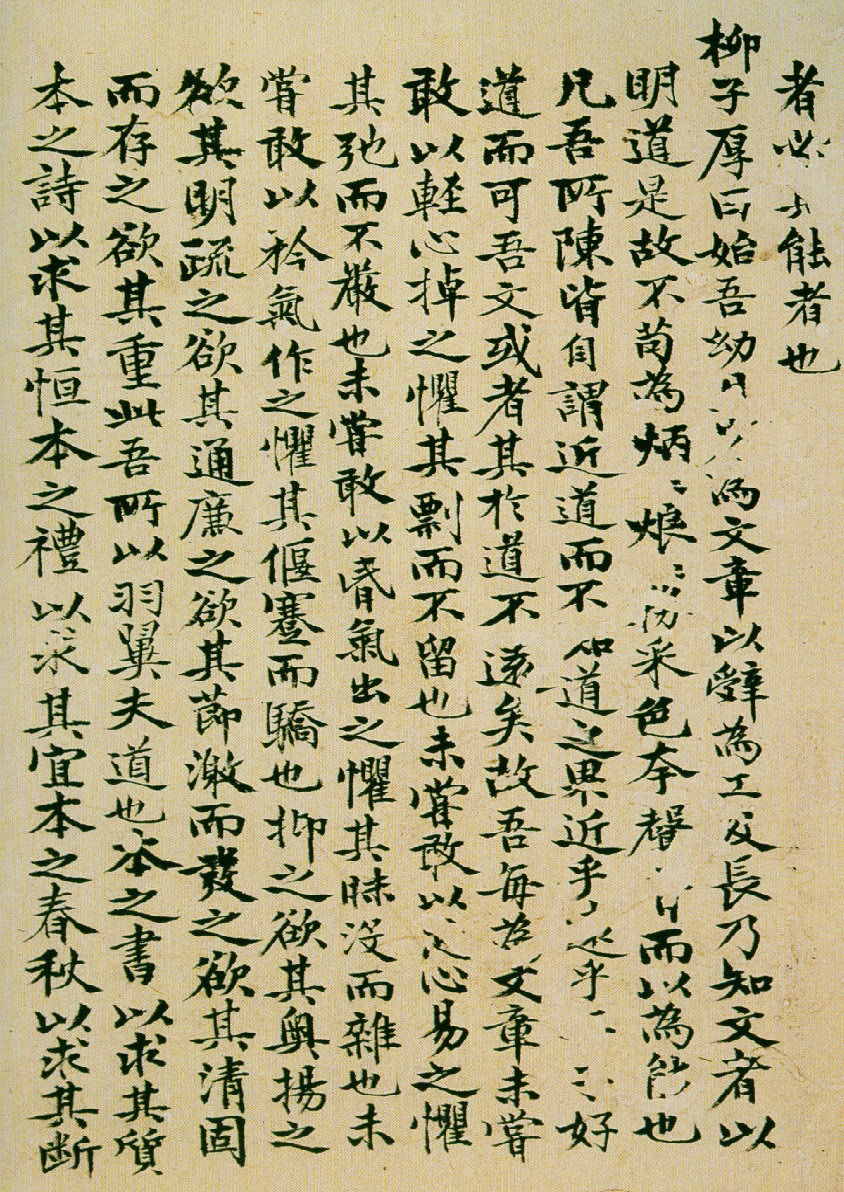 者必能者也
柳子厚曰始吾幼為文章以辭為工及長乃知文者以
明道是故不苟為炳々烺々務采色夸聲而以為飾也
凡吾所陳皆自謂近道而不知道之果近乎遠乎好
道而可吾文或者其於道不遠矣故吾每為文章未嘗
敢以輕心掉之懼其剽而不留也未嘗敢以怠心易之懼
其弛而不嚴也未嘗敢以昏氣出之懼其昧沒而雜也未
嘗敢以矜氣作之懼其偃蹇而驕也抑之欲其奧揚之
欲其明疏之欲其通廉之欲其節激而發之欲其清固
而存之欲其重此吾所以羽翼夫道也本之書以求其質
本之詩以求其恒本之禮以求其宜本之春秋以求其断